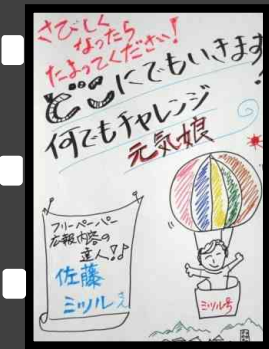 さびしく
なったら
たよってください!
どこにでもいきます
何でもチャレンジ
元気娘
フリーペーパー
広報内容の
達人!!
佐藤
ミツル
ミツル号